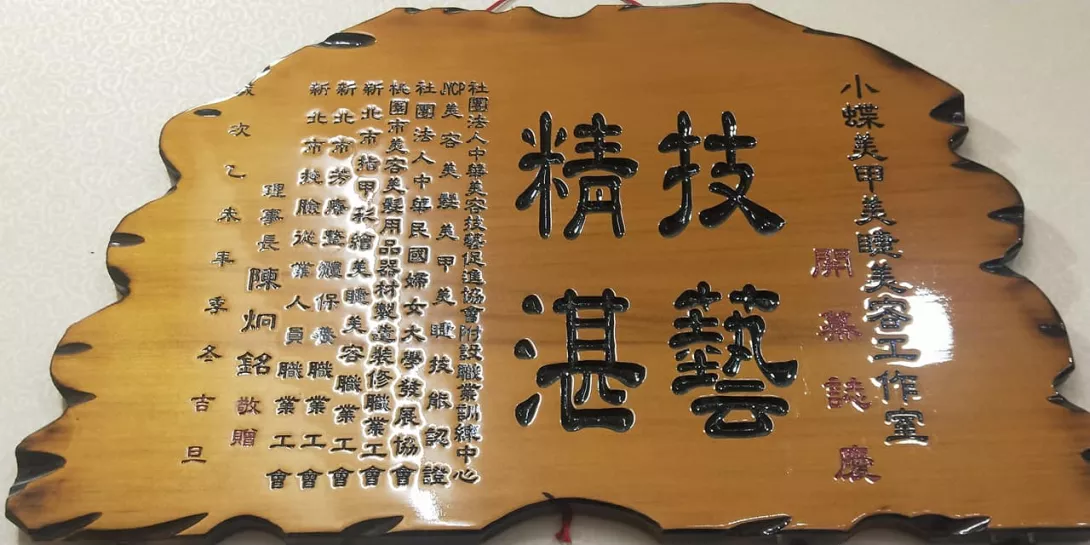 小蝶美甲美睫美容工作室
開幕誌慶
技藝
精湛
社團法人中華美容技藝促進協會附設職業訓練中心
JYCP美容美髮美甲美睫技能認證
社團法人中華民國婦女大學發展協會
桃園市美容美髮用品器材製造裝修職業工會
新北市指甲彩繪美睫美容職業工會
新北市芳療整體保養職業工會
新北市挽臉從業人員職業工會
理事長 陳炯銘 敬贈
歲次乙未年季冬吉旦